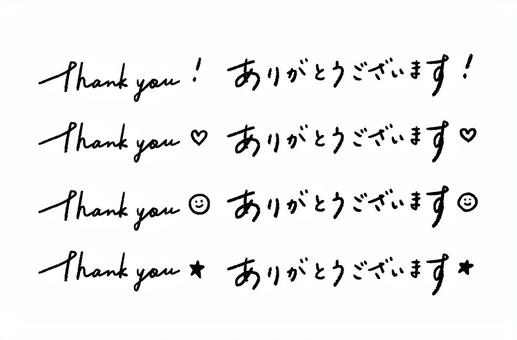 Thank you ! ありがとうございます !
Thank you ♡ ありがとうございます ♡
Thank you ☺ ありがとうございます ☺
Thank you ★ ありがとうございます ★